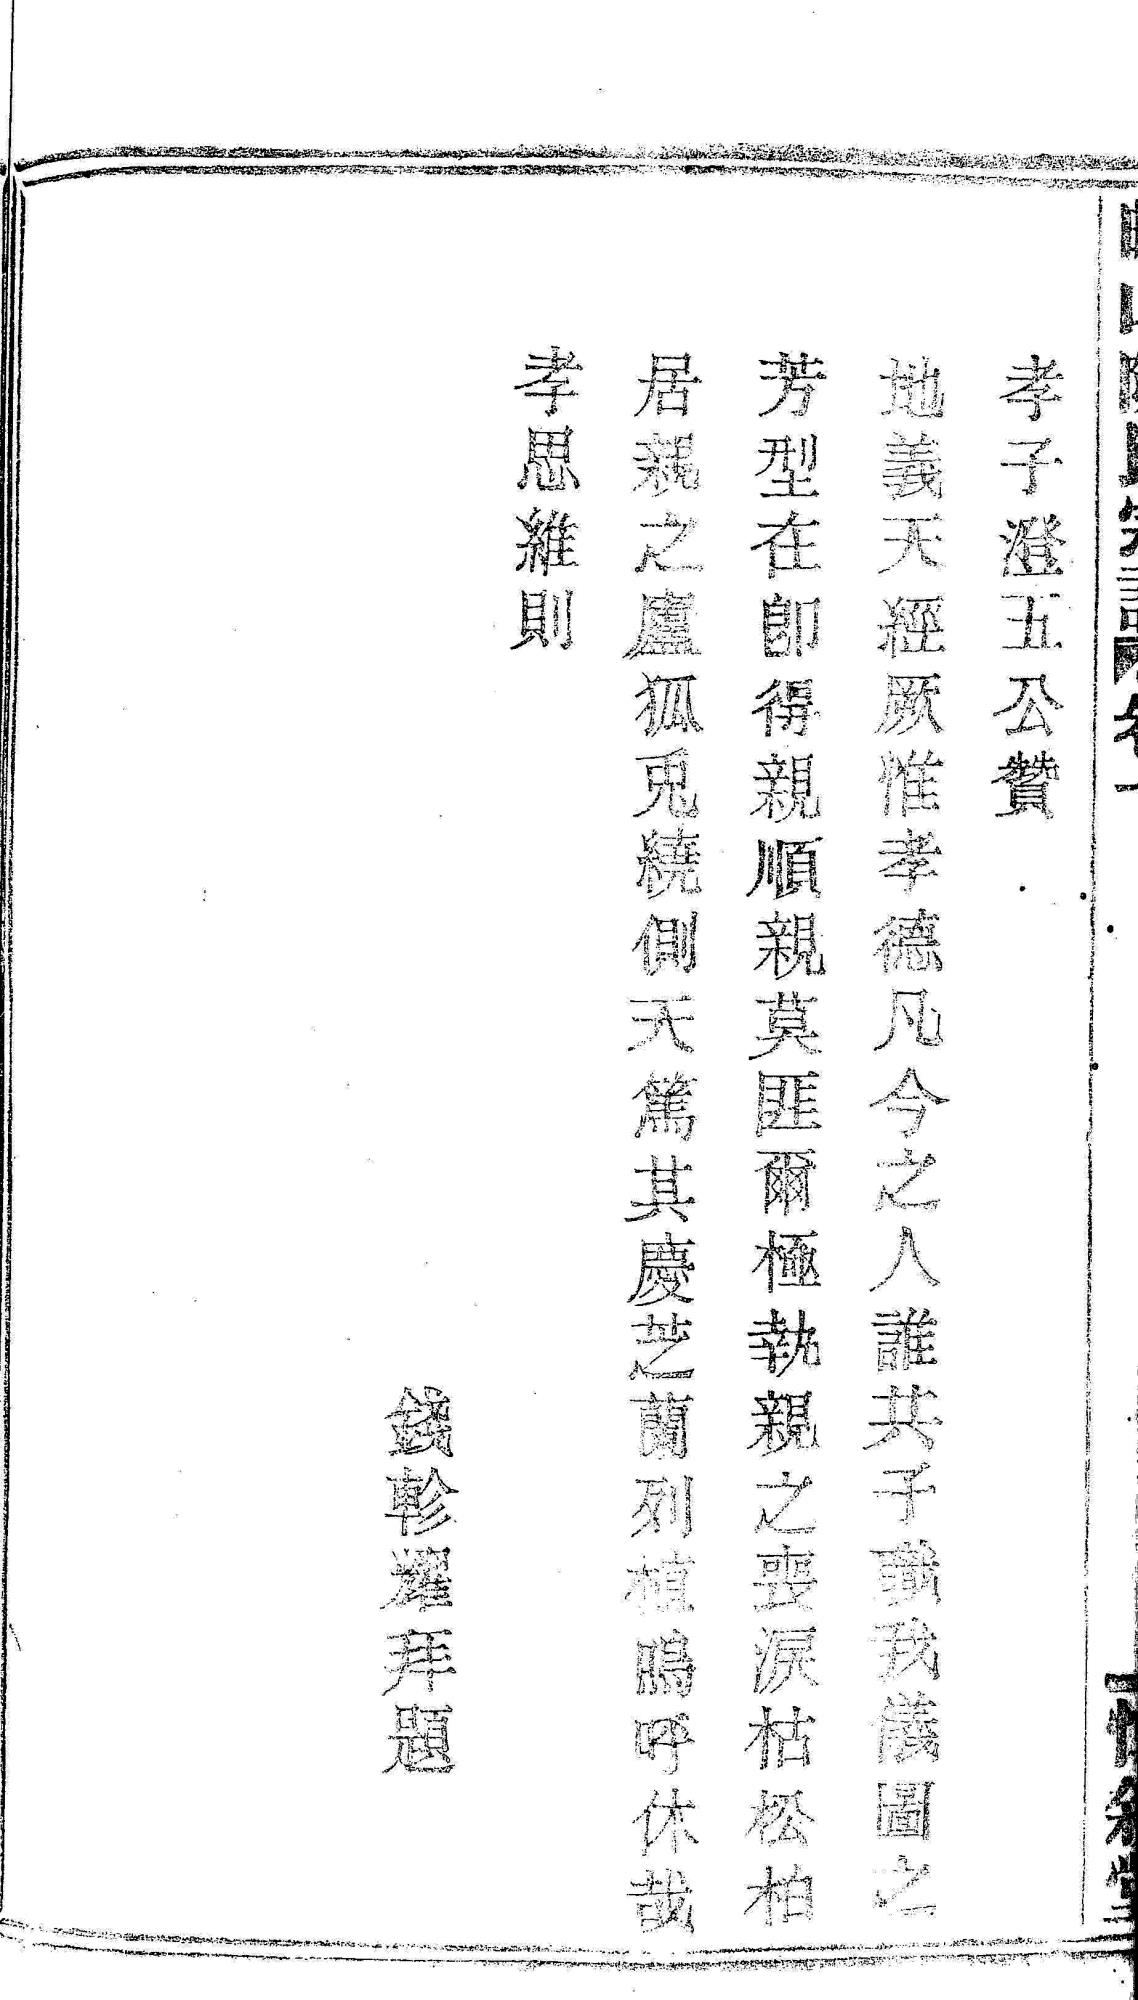 孝子澄五公贊
地義天經厥惟孝德凡今之人誰共子職我儀圖之
芳型在卽得親順親莫匪爾極執親之喪淚枯松柏
居親之廬狐兎繞側天篤其慶芝蘭列植嗚呼休哉
孝思維則
錢軫耀拜題